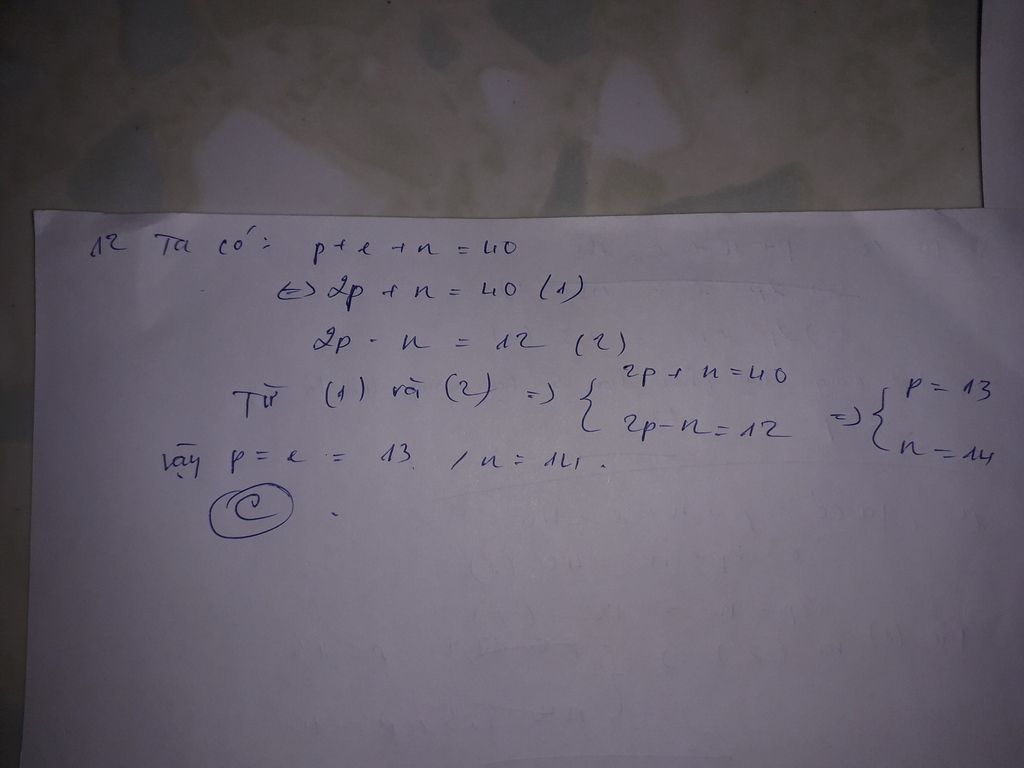 12 Ta có: p + e + n = 40
<=> 2p + n = 40 (1)
2p - n = 12 (2)
Từ (1) và (2) => { 2p + n = 40 2p - n = 12 => { p = 13 n = 14
vậy p = e = 13, n = 14.
C.